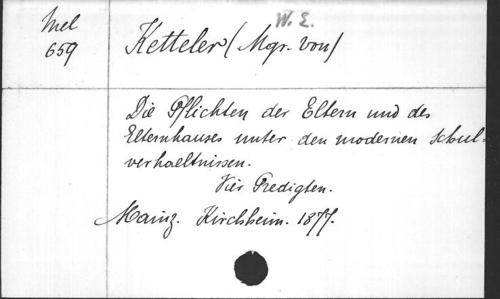 W. E.
Mel Ketteler (Mgr. von)
659
Die Pflichten der Eltern und des
Elternhauses unter den modernen Schul-
verhaeltnissen.
Vier Predigten.
Mainz. Kirchheim. 1877.